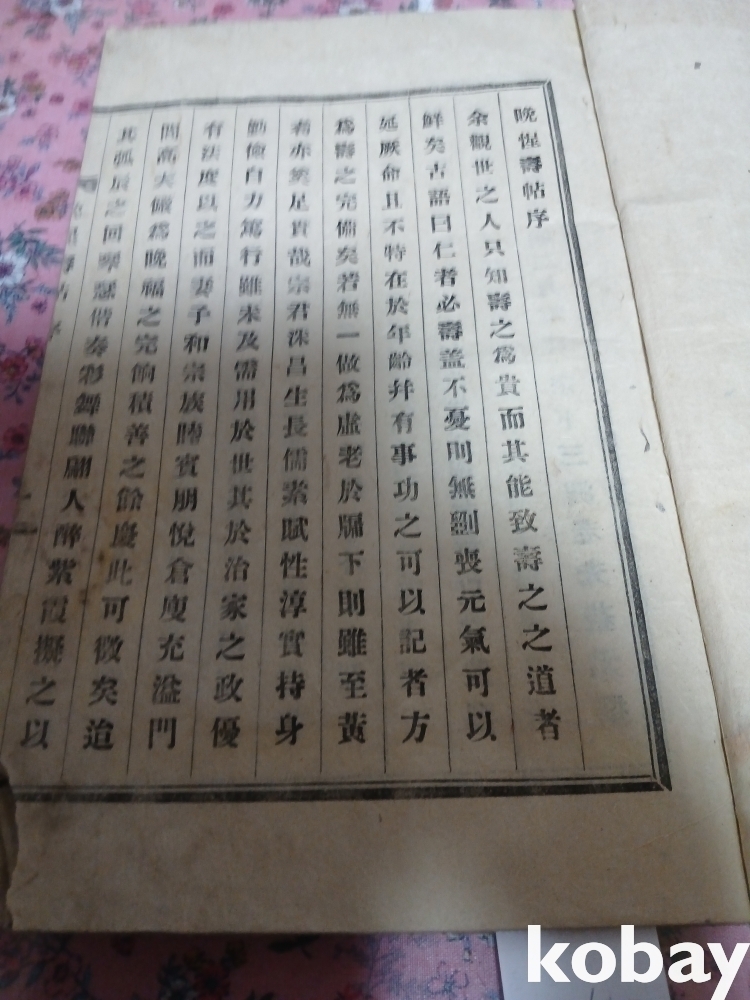 晚惺壽帖序
余觀世之人只知壽之爲貴而其能致壽之之道者
鮮矣古語曰仁者必壽盖不憂則無劉喪元氣可以
延厥命且不特在於年齡幷有事功之可以記者方
爲壽之完備矣若無一做爲虛老於牖下則雖至黃
耈亦奚足貴哉宗君洙昌生長儒素賦性淳實持身
勤儉自力篤行雖未及需用於世其於治家之政優
有法度以之而妻子和宗族睦賓朋悅倉廩充溢門
閭高大儘爲晚福之完餉積善之餘慶此可徵矣迨
其弧辰之回率 俗奏彩舞聯翩人醉紫霞擬之以
壽帖 序
kobay